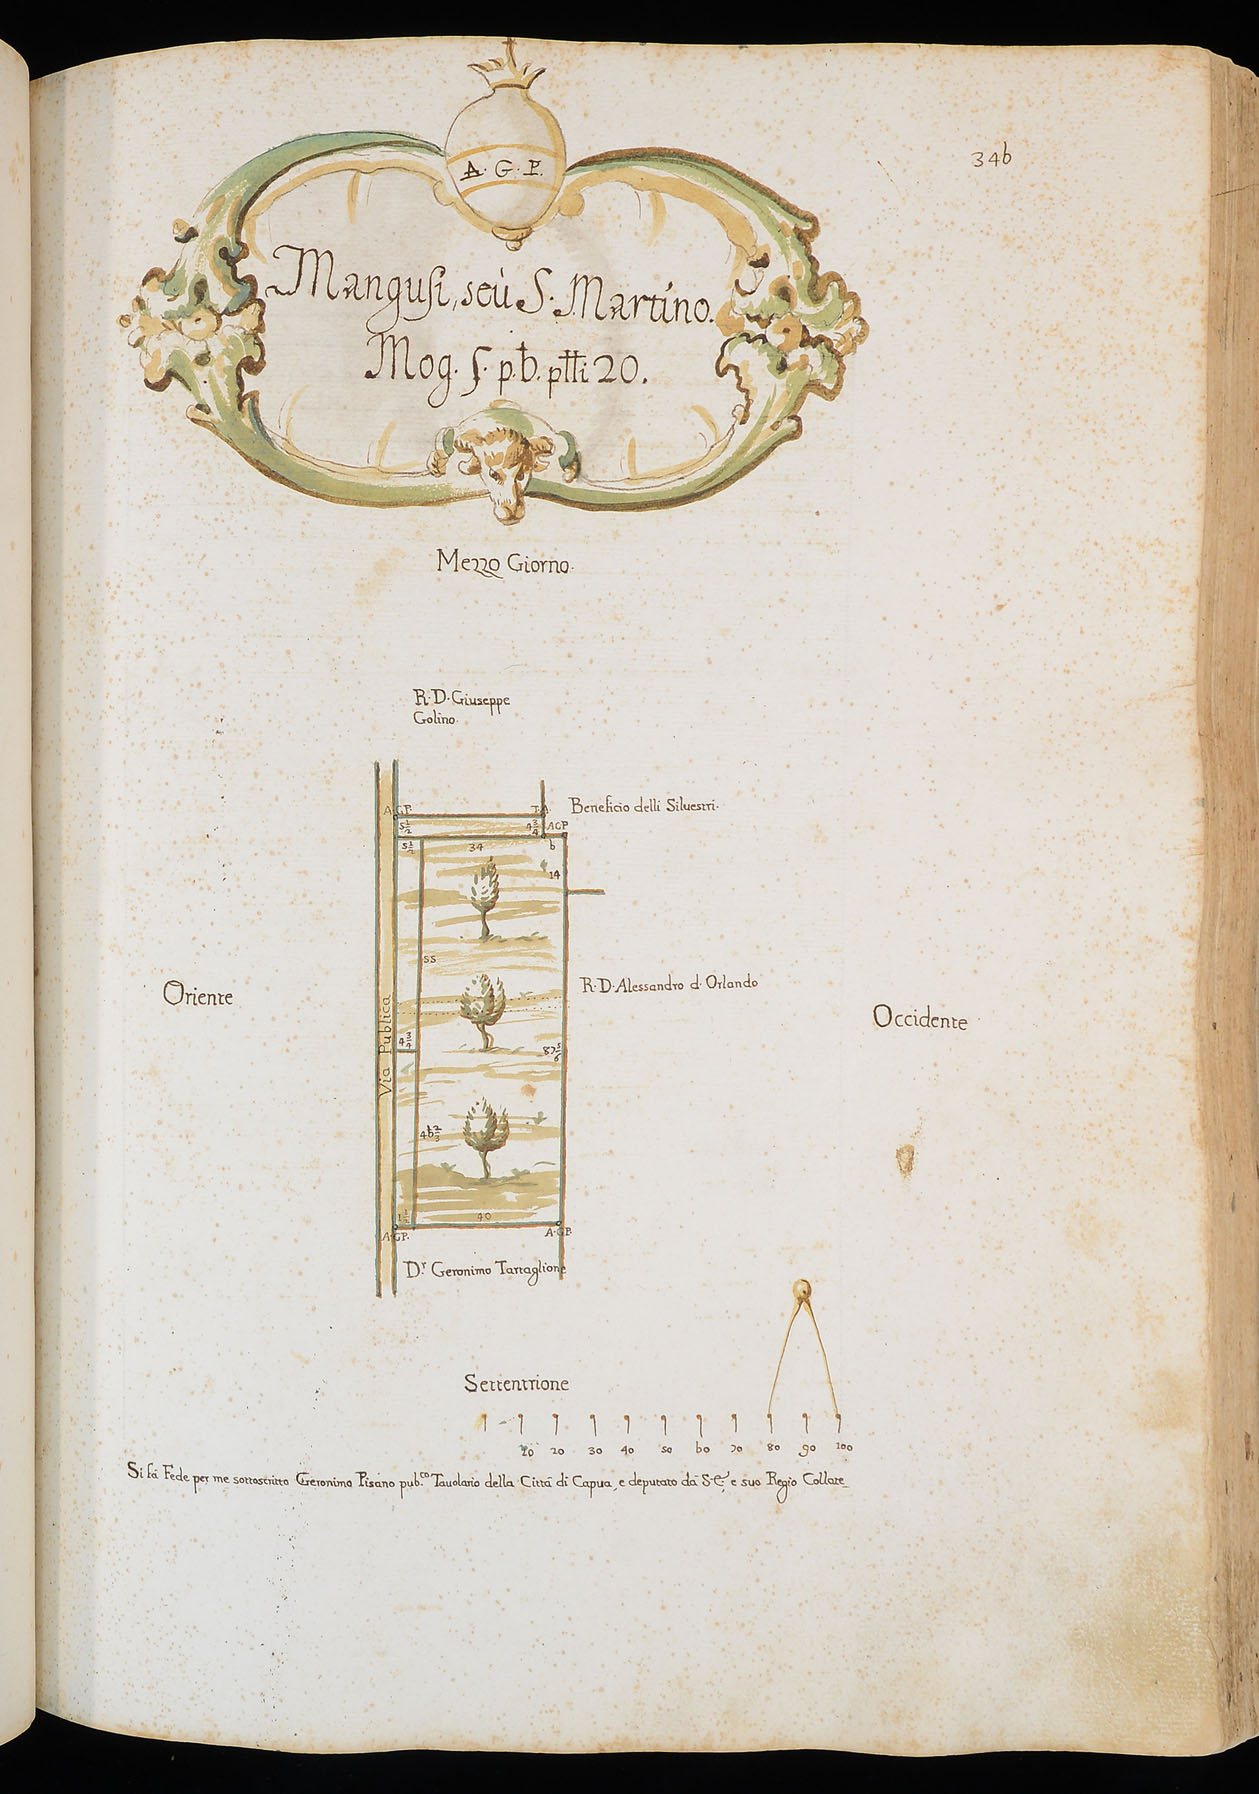 A·G·P.
346
Mangusi, seù S. Martino.
Mog. 5. p.b. ptti 20.
Mezzo Giorno.
R·D·Giuseppe
Golino.
A·GP.
T.A
Beneficio delli Siluestri.
5 1/2
4 3/4
AGP
5 1/2
34
6
14
55
Oriente
R·D·Alessandro d'Orlando
Occidente
Via Publica
4 3/4
87 5/6
46 2/3
1 1/2
40
A·GP.
A·GP.
D.r Geronimo Tartaglione
Settentrione
10 20 30 40 50 60 70 80 90 100
Si fà Fede per me sottoscritto Geronimo Pisano pub.co Tauolario della Città di Capua, e deputato dà S.E. e suo Regio Collate